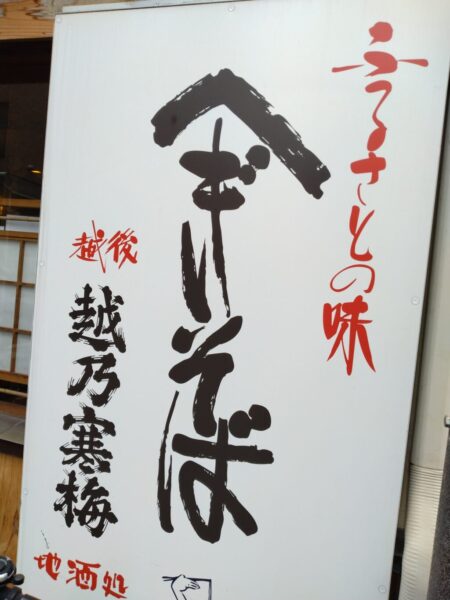 ふるさとの味
へぎそば
越後
越乃寒梅
地酒処